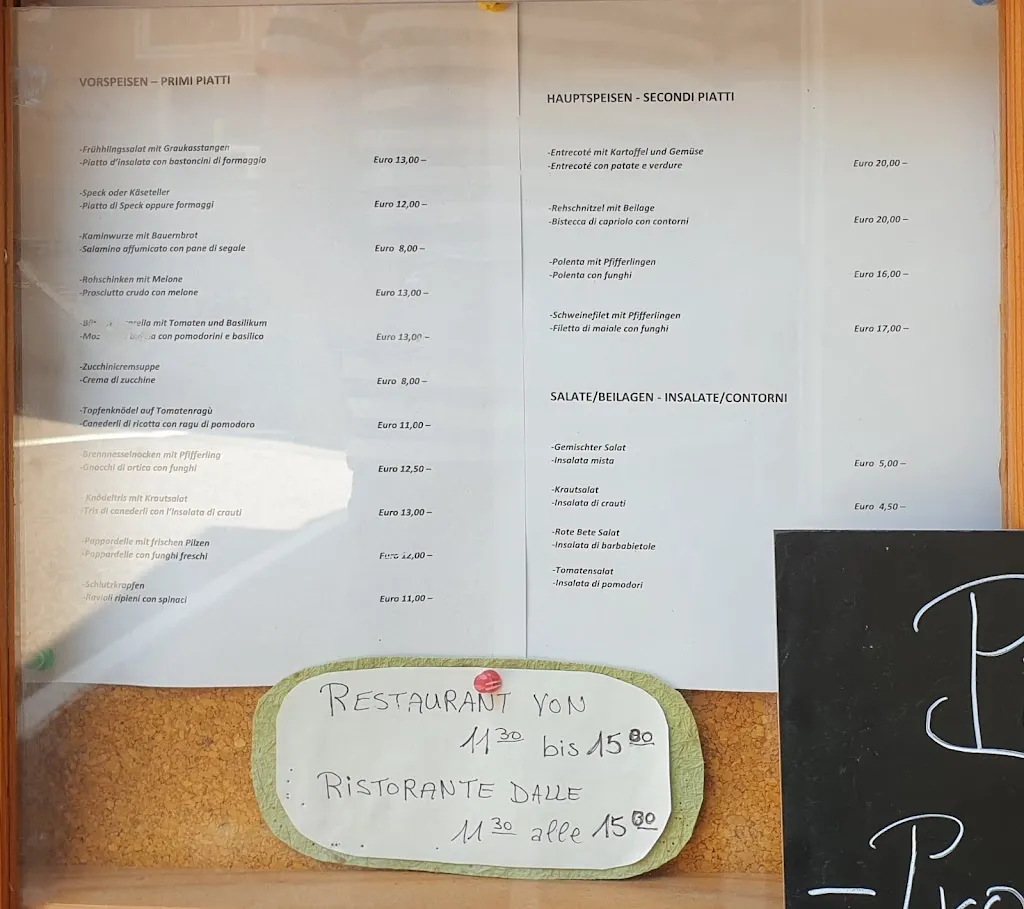 VORSPEISEN – PRIMI PIATTI
-Frühhlingssalat mit Graukasstangen
-Piatto d'insalata con bastoncini di formaggio Euro 13,00 –
-Speck oder Käseteller
-Piatto di Speck oppure formaggi Euro 12,00 –
-Kaminwurze mit Bauernbrot
-Salamino affumicato con pane di segale Euro 8,00 –
-Rohschinken mit Melone
-Prosciutto crudo con melone Euro 13,00 –
mit Tomaten und Basilikum
con pomodorini e basilico Euro 13,00 –
-Zucchinicremsuppe
-Crema di zucchine Euro 8,00 –
-Topfenknödel auf Tomatenragù
-Canederli di ricotta con ragu di pomodoro Euro 11,00 –
-Brennnesselnocken mit Pfifferling
-Gnocchi di ortica con funghi Euro 12,50 –
-Knödeltris mit Krautsalat
-Tris di canederli con l'insalata di crauti Euro 13,00 –
-Pappardelle mit frischen Pilzen
-Pappardelle con funghi freschi Euro 12,00 –
-Schlutzkrapfen
-Ravioli ripieni con spinaci Euro 11,00 –
HAUPTSPEISEN - SECONDI PIATTI
-Entrecoté mit Kartoffel und Gemüse
-Entrecoté con patate e verdure Euro 20,00 –
-Rehschnitzel mit Beilage
-Bistecca di capriolo con contorni Euro 20,00 –
-Polenta mit Pfifferlingen
-Polenta con funghi Euro 16,00 –
-Schweinefilet mit Pfifferlingen
-Filetto di maiale con funghi Euro 17,00 –
SALATE/BEILAGEN - INSALATE/CONTORNI
-Gemischter Salat
-Insalata mista Euro 5,00 –
-Krautsalat
-Insalata di crauti Euro 4,50 –
-Rote Bete Salat
-Insalata di barbabietole
-Tomatensalat
-Insalata di pomodori
RESTAURANT VON
11 30 bis 15
RISTORANTE DALLE
11 30 alle 15